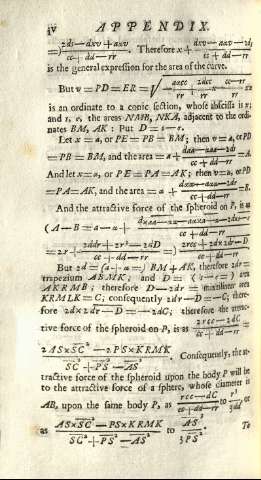 iv APPENDIX.
=) 2di—dxv+axv / cc+dd—rr . Therefore x +
is the general expression for the area of the curve.
But v = PD = ER = √
is an ordinate to a conic section, whose abscissa is x;
and s, e, the areas NMB, NKA, adjacent to the ordi-
nates BM, AK: Put D = s—e.
Let x=a, or PE=PB=BM; then v=a, or PD
=PB=BM, and the area = s +
And let x=α, or PE=PA=AK; then v=α, or PD
=PA=AK, and the area = α +
And the attractive force of the spheroid on P, is as
(A—B=a—α+
=2r—
But 2d=(a+α=) BM+AK, therefore 2dr=
trapezium ABMK; and D=(s—e=) area
AKRMB; therefore D—2dr = mixtilinear area
KRMLK=C; consequently 2dr—D=—C; there-
fore 2d×2dr—D=—2dC; therefore the attrac-
tive force of the spheroid on P, is as 2rcc—2dC / cc+dd—rr =
2AS×SC²—2PS×KRMK / SC²+PS²—AS² . Consequently, the at-
tractive force of the spheroid upon the body P will be
to the attractive force of a sphere, whose diameter is
AB, upon the same body P, as rcc—dC / cc+dd—rr to r³ / 3dd, or
as AS×SC²—PS×KRMK / SC²+PS²—AS² to AS³ / 3PS² . To